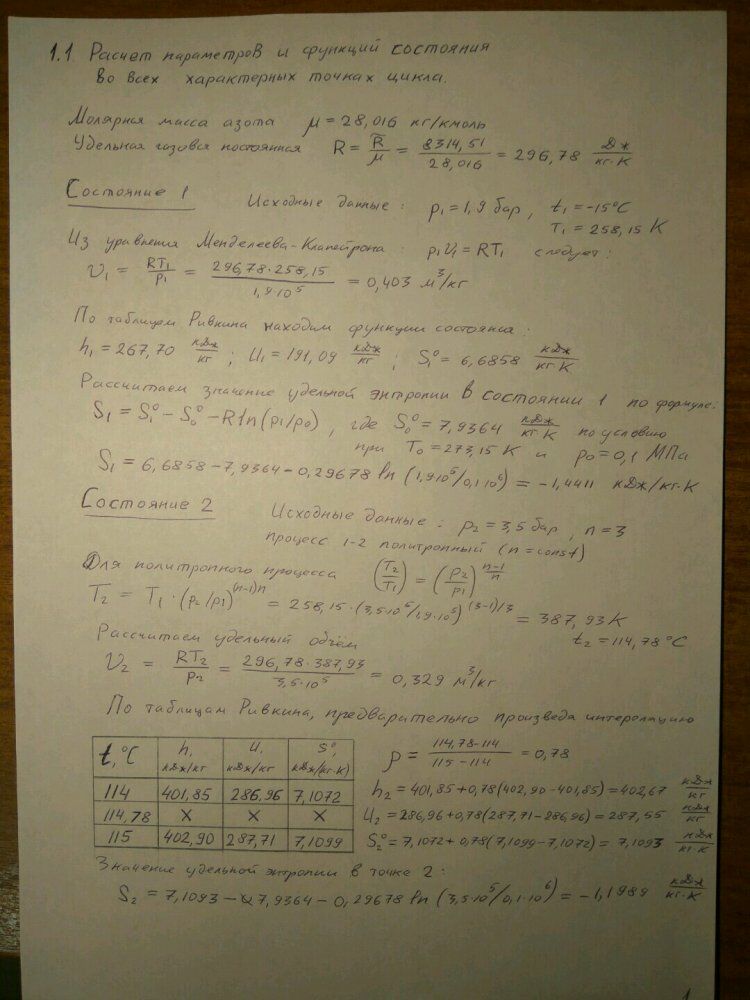 1.1 Расчет параметров и функций состояния
во всех характерных точках цикла.
Молярная масса азота μ = 28,016 кг/кмоль
Удельная газовая постоянная R = R̄/μ = 8314,51/28,016 = 296,78 Дж/кг·К
Состояние 1 Исходные данные: p₁ = 1,9 бар, t₁ = -15°C
T₁ = 258,15 К
Из уравнения Менделеева-Клапейрона: p₁v₁ = RT₁ следует:
v₁ = RT₁/p₁ = 296,78·258,15/1,9·10⁵ = 0,403 м³/кг
По таблицам Ривкина находим функции состояния:
h₁ = 267,70 кДж/кг ; u₁ = 191,09 кДж/кг ; S₁⁰ = 6,6858 кДж/кг К
Рассчитаем значение удельной энтропии в состоянии 1 по формуле:
S₁ = S₁⁰ - S₀⁰ - R ln(p₁/p₀), где S₀⁰ = 7,9364 кДж/кг К по условию
при T₀ = 273,15 К и p₀ = 0,1 МПа
S₁ = 6,6858 - 7,9364 - 0,29678 ln (1,9·10⁵/0,1·10⁶) = -1,4411 кДж/кг·К
Состояние 2 Исходные данные: p₂ = 3,5 бар, n = 3
процесс 1-2 политропный (n = const)
Для политропного процесса (T₂/T₁) = (p₂/p₁)^(n-1/n)
T₂ = T₁·(p₂/p₁)^(n-1)n = 258,15·(3,5·10⁶/1,9·10⁵)^(3-1)/3 = 387,93 К
t₂ = 114,78 °C
Рассчитаем удельный объём
v₂ = RT₂/p₂ = 296,78·387,93/3,5·10⁵ = 0,329 м³/кг
По таблицам Ривкина, предварительно произведа интерполацию
t, °C h, кДж/кг u, кДж/кг S⁰, кДж/(кг·К) ρ = 114,78-114/115-114 = 0,78
114 401,85 286,96 7,1072 h₂ = 401,85 + 0,78(402,90 - 401,85) = 402,67 кДж/кг
114,78 X X X u₂ = 286,96 + 0,78(287,71 - 286,96) = 287,55 кДж/кг
115 402,90 287,71 7,1099 S₂⁰ = 7,1072 + 0,78(7,1099 - 7,1072) = 7,1093 кДж/кг·К
Значение удельной энтропии в точке 2:
S₂ = 7,1093 - 7,9364 - 0,29678 ln (3,5·10⁵/0,1·10⁶) = -1,1989 кДж/кг·К